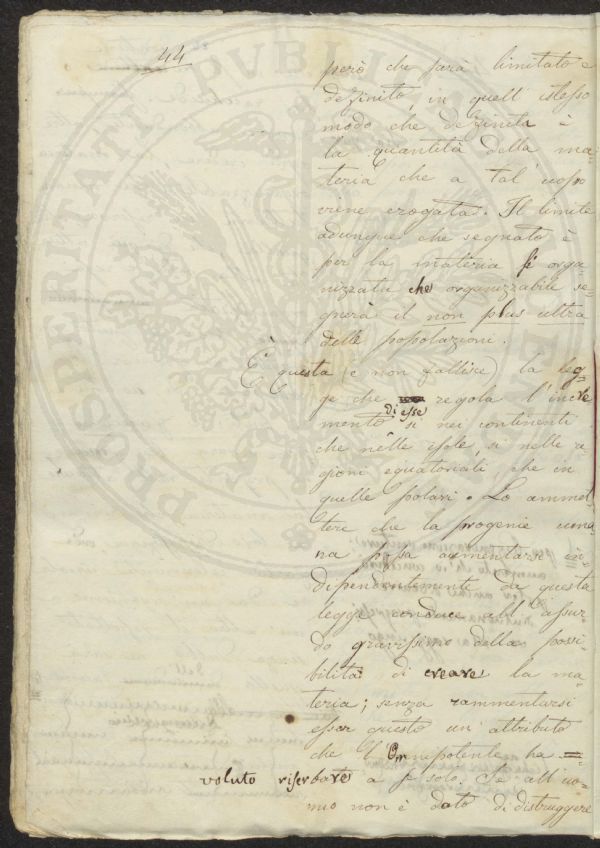 44
però che sarà limitato e
definito, in quell' istesso
modo che definita è
la quantità della ma=
teria che a tal' uopo
viene erogata. Il limite
adunque che segnato è
per la materia si orga=
nizzata che organizzabile se=
gnerà il non plus ultra
delle popolazioni.
È questa (e non fallisce) la leg=
ge che regola l'incre
mento di esse sì nei continenti
che nelle isole, sì nelle re
gioni equatoriali, che in
quelle polari. Lo ammet=
tere che la progenie uma=
na possa aumentarsi in=
dipendentemente da questa
legge conduce all' assur=
do gravissimo della possi=
bilità di creare la ma=
teria; senza rammentarsi
esser questo un' attributo
che l'Onnipotente ha =
voluto riserbare a se solo. Se all' uo=
mo non è dato di distruggere
PROSPERITATI PUBLICAE